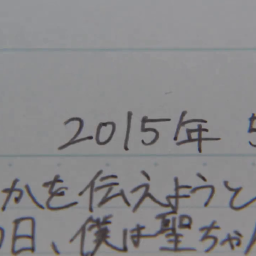 2015年 5
かを伝えようと
日、僕は聖ちゃん